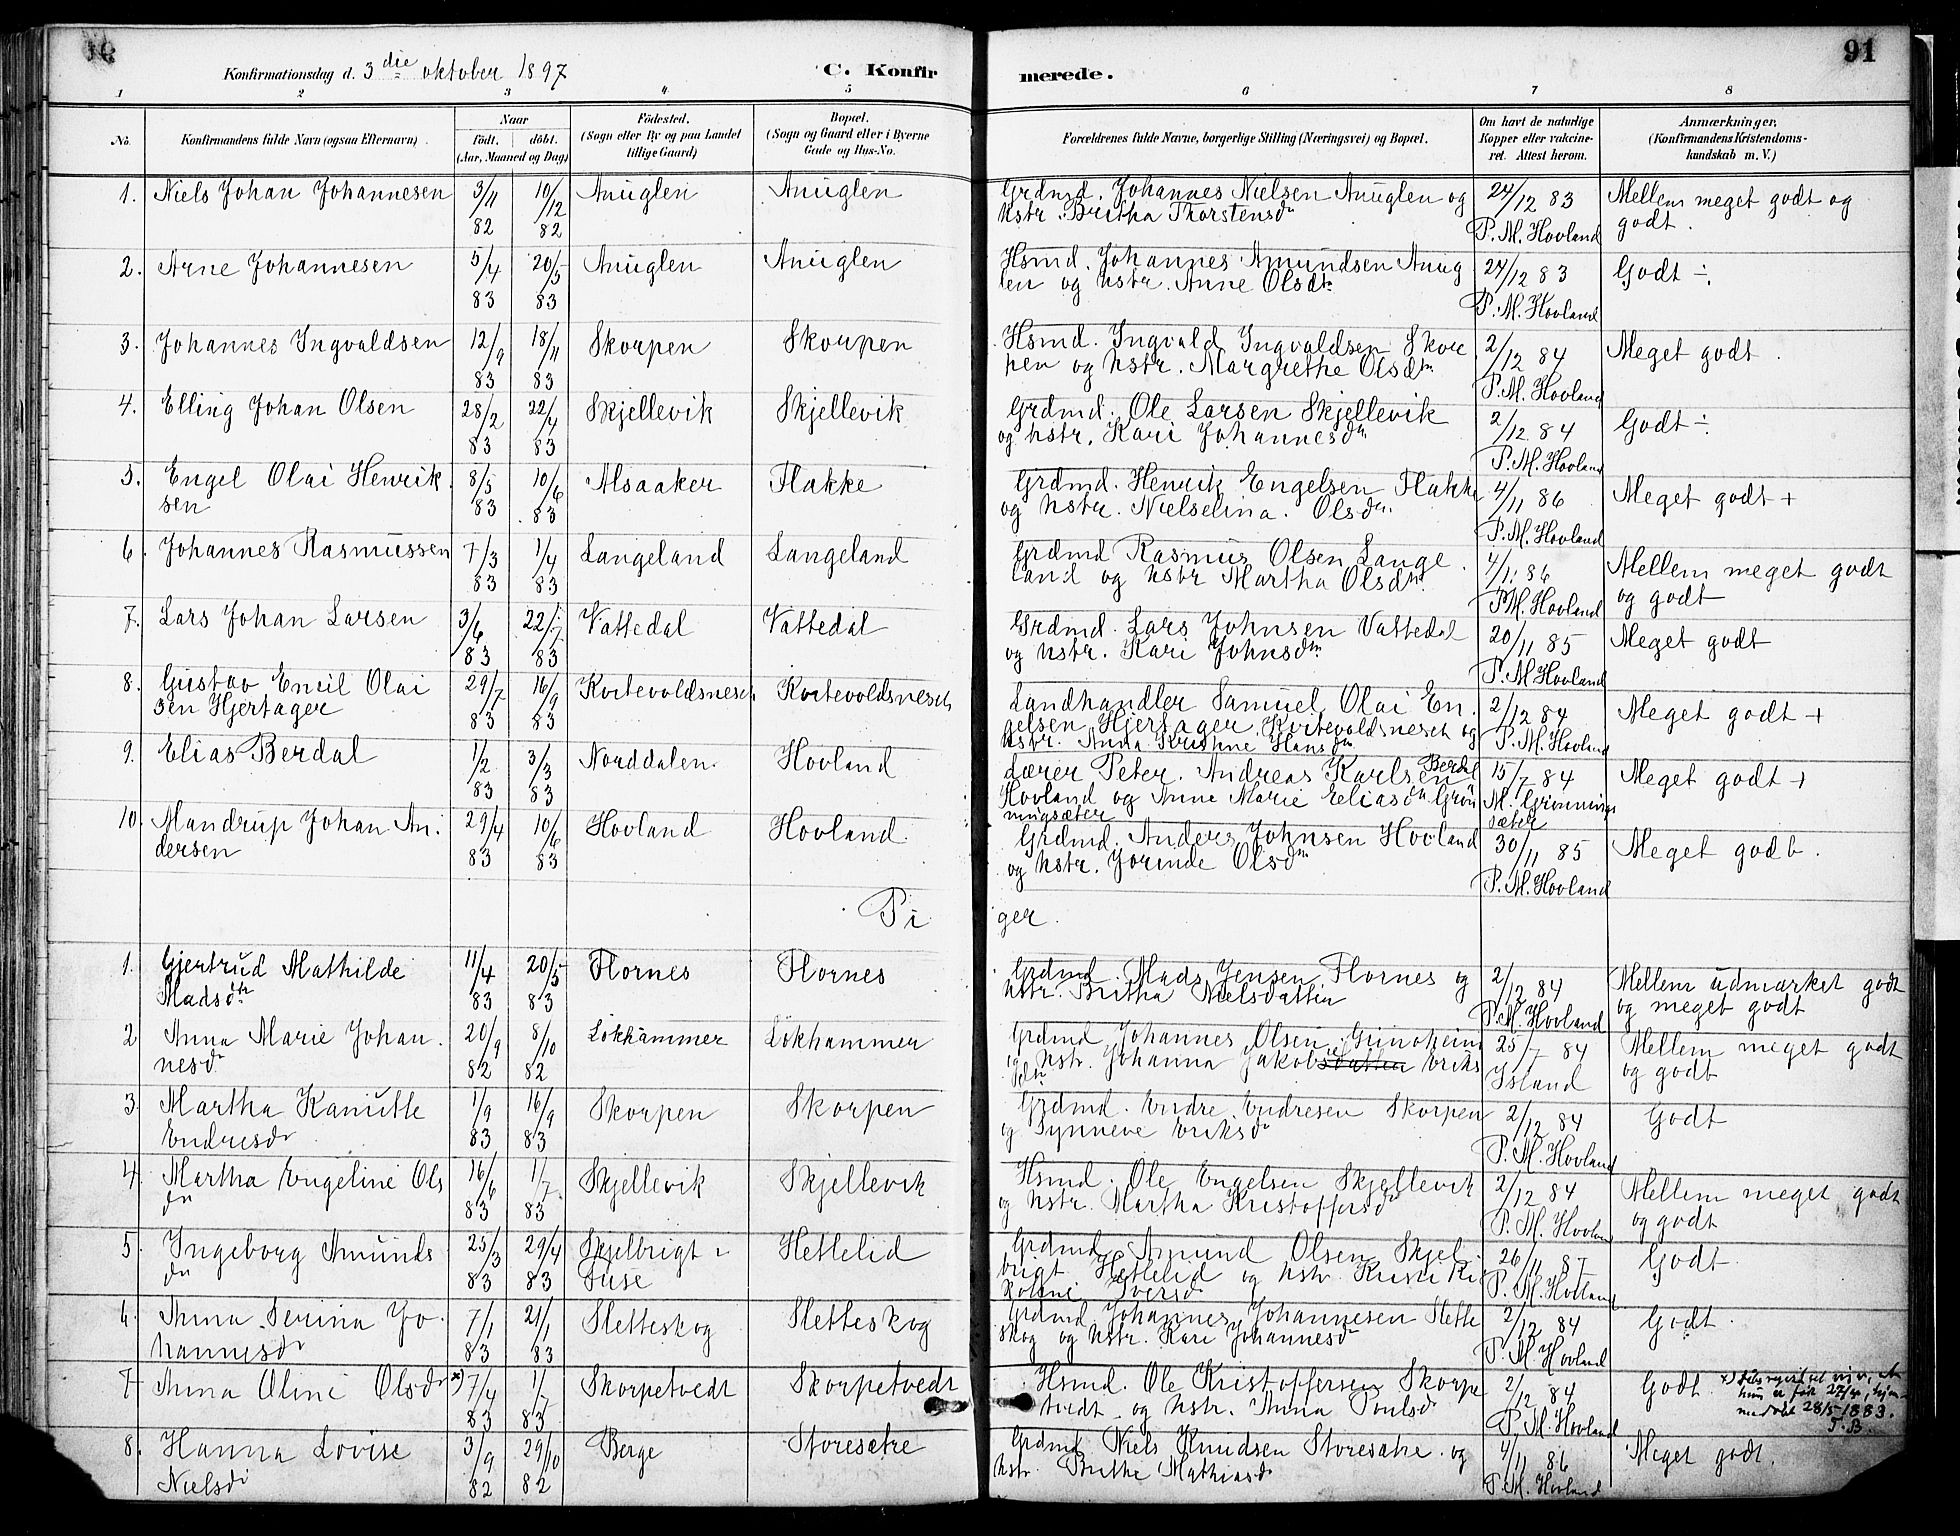 91
Konfirmationsdag d. 3die oktober 1897
C. Konfirmerede.
1 2 3 4 5 6 7 8
No.
Konfirmandens fulde Navn (ogsaa Efternavn)
Naar
födt. döbt.
(Aar, Maaned og Dag)
Födested.
(Sogn eller By og paa Landet
tillige Gaard)
Bopæl.
(Sogn og Gaard eller i Byerne
Gade og Hus-No.
Forældrenes fulde Navne, borgerlige Stilling (Næringsvei) og Bopæl.
Om havt de naturlige
Kopper eller vakcine-
ret. Attest herom.
Anmærkninger,
(Konfirmandens Kristendoms-
kundskab m. V.)
1. Niels Johan Johannesen 3/11 82 10/12 82 Anuglen Anuglen Grdmd. Johannes Nielsen Anuglen og
hstr. Britha Thorstensdr 24/12 83 P. M. Hovland Mellem meget godt og
godt.
2. Arne Johannesen 5/4 83 20/5 83 Anuglen Anuglen Hsmd. Johannes Amundsen Anug
len og hstr. Anne Olsdtr 24/12 83 P. M. Hovland Godt ÷
3. Johannes Ingvaldsen 12/9 83 18/11 83 Skorpen Skorpen Hsmd. Ingvald Ingvaldsen Skor
pen og hstr. Margrethe Olsdtr 2/12 84 P. M. Hovland Meget godt.
4. Elling Johan Olsen 28/2 83 22/4 83 Skjellevik Skjellevik Grdmd. Ole Larsen Skjellevik
og hstr. Kari Johannesdtr 2/12 84 P. M. Hovland Godt ÷
5. Engel Olai Henrik
sen 8/5 83 10/6 83 Alsaaker Flakke Grdmd. Henrik Engelsen Flakke
og hstr. Nielselina Olsdtr. 4/11 86 P. M. Hovland Meget godt +
6. Johannes Rasmussen 7/3 83 1/4 83 Langeland Langeland Grdmd Rasmus Olsen Lange
land og hstr Martha Olsdtr. 4/11 86 P. M. Hovland Mellem meget godt
og godt
7. Lars Johan Larsen 3/6 83 22/7 83 Vattedal Vattedal Grdmd. Lars Johnsen Vattedal
og hstr. Kari Johnsdtr 20/11 85 P. M. Hovland Meget godt
8. Gustav Emil Olai
sen Hjertager 29/7 83 16/9 83 Kvitevoldsneset Kvitevoldsneset Landhandler Samuel Olai En
gelsen Hjertager, Kvitevoldsneset og
hstr. Anna Kristine Hansdtr 2/12 84 P. M. Hovland Meget godt +
9. Elias Berdal 1/2 83 3/3 83 Norddalen Hovland Lærer Peter Andreas Karlsen Berdal
Hovland og Anne Marie Eliasdtr Grön
ningsæter 15/7 84 M. Grönnings
sæter Meget godt +
10. Mandrup Johan An
dersen 29/4 83 10/6 83 Hovland Hovland Grdmd. Anders Johnsen Hovland
og hstr. Jorinde Olsdtr 30/11 85 P. M. Hovland Meget godt.
Piger.
1. Gjertrud Mathilde
Madsdtr 11/4 83 20/5 83 Flornes Flornes Grdmd. Mads Jensen Flornes og
hstr. Britha Nielsdatter 2/12 84 P. M. Hovland Mellem udmærket godt
og meget godt
2 Anna Marie Johan
nesdr 20/9 82 8/10 82 Lökhammer Lökhammer Grdmd Johannes Olsen
og hstr. Johanna Jakobsdatter Eriks 25/7 84 Island Mellem meget godt
og godt
3. Martha Kanutte
Endresdr 1/9 83 16/9 83 Skorpen Skorpen Grdmd. Endre Endresen Skorpen
og Synneve Eriksdr 2/12 84 P. M. Hovland Godt
4. Martha Engeline Ols
dr 16/6 83 1/7 83 Skjellevik Skjellevik Hsmd. Ole Engelsen Skjellevik
og hstr. Martha Kristoffersdr 2/12 84 P. M. Hovland Mellem meget godt
og godt
5. Ingeborg Amunds
dr 25/3 83 29/4 83 Skjelbrigt i
Fuse Hetlelid Grdmd Amund Olsen Skjel
brigt Hetlelid og hstr. Iversdr 26/11 87 P. M. Hovland Godt
6. Anna Serina Jo
hannesdr 7/1 83 21/1 83 Sletteskog Sletteskog Grdmd Johannes Johannesen Slette
skog og hstr. Kari Johannesdr 2/12 84 P. M. Hovland Godt.
7 Anna Oline Olsdr x) 7/4 83 1/7 83 Skorpetvedt Skorpetvedt Hsmd. Ole Kristoffersen Skorpe
tvedt og hstr. Anna Poulsdr 2/12 84 P. M. Hovland Godt x)
hun er født 27/4, hjem
medøbt 28/5 1883.
J. B.
8. Hanna Lovise
Nielsdr 3/9 82 29/10 82 Berge Storesætre Grdmd Niels Knudsen Storesætre og
hstr. Brithe Mathiasdr 4/11 86 P. M. Hovland Meget godt.